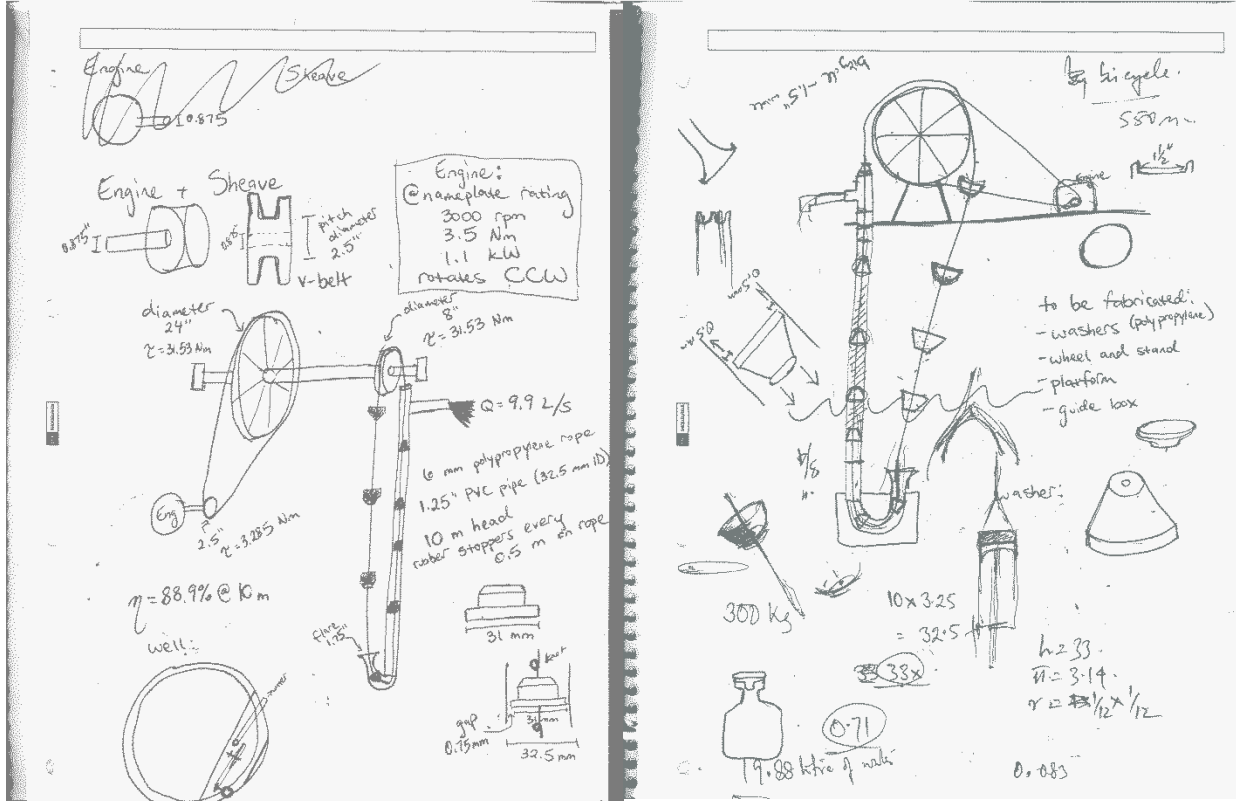 Engine
Sheave
0.875
Engine + Sheave
0.875"
pitch
diameter
2.5"
v-belt
Engine:
@nameplate rating
3000 rpm
3.5 Nm
1.1 kW
rotates CCW
diameter
24"
τ=31.53 Nm
diameter
8"
τ=31.53 Nm
Q = 9.9 L/s
6 mm polypropylene rope
1.25" PVC pipe (32.5 mm ID)
10 m head
rubber stoppers every
0.5 m on rope
Eng
2.5"
τ=3.285 Nm
η=88.9% @ 10 m
flare
1.75"
31 mm
well:
knot
gap
0.75mm
31 mm
32.5 mm
bicycle.
550
1/2"
Engine
0.5mm
to be fabricated:
- washers (polypropylene)
- wheel and stand
- platform
- guide box
3/4
washer:
300 Kg
10 x 3.25
= 32.5
33x
h = 33.
π = 3.14.
r = 1/12 x 1/12
0.71
9.88 litre of water
0.083